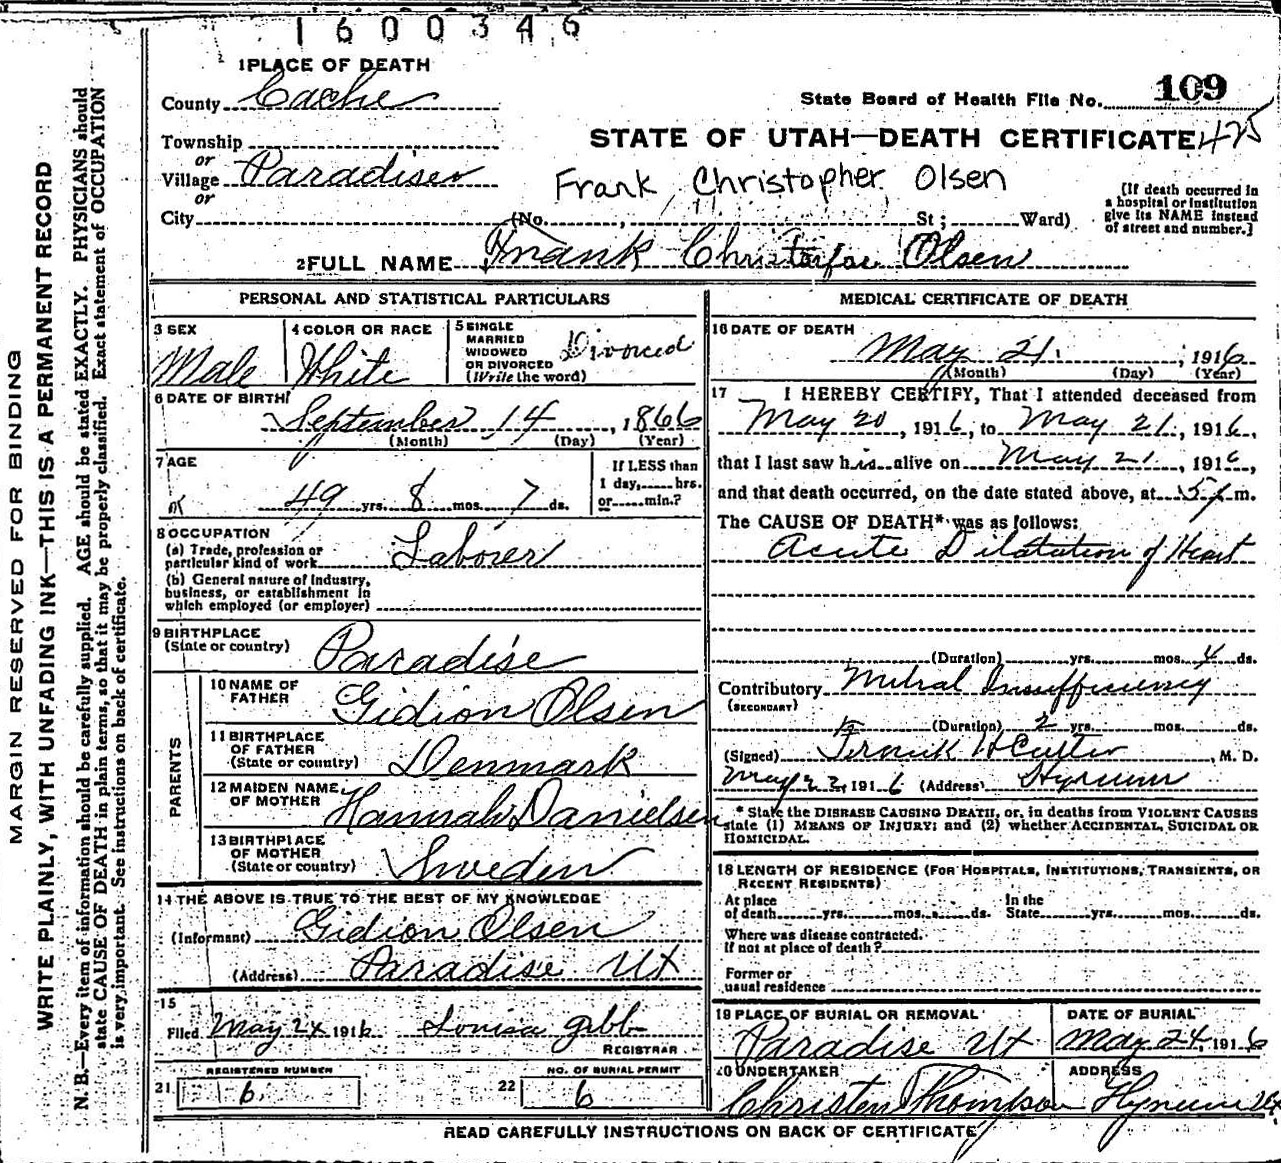 1600346
1 PLACE OF DEATH
County Cache
State Board of Health File No. 109
Township
STATE OF UTAH—DEATH CERTIFICATE 475
or
Village Paradise
Frank Christopher Olsen
or
City (No. , St ; Ward)
(If death occurred in
a hospital or institution
give its NAME instead
of street and number.]
2 FULL NAME Frank Christofor Olsen
PERSONAL AND STATISTICAL PARTICULARS
3 SEX
Male
4 COLOR OR RACE
White
5 SINGLE
MARRIED
WIDOWED
OR DIVORCED
(Write the word)
Divorced
6 DATE OF BIRTH
September 14, 1866
(Month) (Day) (Year)
7 AGE
49 yrs. 8 mos. 7 ds.
If LESS than
1 day, hrs.
or min.?
8 OCCUPATION
(a) Trade, profession or
particular kind of work Laborer
(b) General nature of Industry,
business, or establishment in
which employed (or employer)
9 BIRTHPLACE
(State or country) Paradise
PARENTS
10 NAME OF
FATHER Gidion Olsen
11 BIRTHPLACE
OF FATHER
(State or country) Denmark
12 MAIDEN NAME
OF MOTHER Hannah Danielsen
13 BIRTHPLACE
OF MOTHER
(State or country) Sweden
14 THE ABOVE IS TRUE TO THE BEST OF MY KNOWLEDGE
(Informant) Gidion Olsen
(Address) Paradise Ut
15
Filed May 24 1916 Louisa Gibb
REGISTRAR
21 REGISTERED NUMBER
6
22 NO. OF BURIAL PERMIT
6
MEDICAL CERTIFICATE OF DEATH
16 DATE OF DEATH
May 21, 1916
(Month) (Day) (Year)
17 I HEREBY CERTIFY, That I attended deceased from
May 20, 1916, to May 21, 1916,
that I last saw his alive on May 21, 1916,
and that death occurred, on the date stated above, at 5 m.
The CAUSE OF DEATH* was as follows:
Acute Dilatation of Heart
(Duration) yrs. mos. 4 ds.
Contributory Mitral Insufficiency
(SECONDARY)
(Duration) 2 yrs. mos. ds.
(Signed) H , M. D.
May 23, 1916 (Address) Hyrum
* State the DISEASE CAUSING DEATH, or, in deaths from VIOLENT CAUSES
state (1) MEANS OF INJURY; and (2) whether ACCIDENTAL, SUICIDAL OR
HOMICIDAL.
18 LENGTH OF RESIDENCE (FOR HOSPITALS, INSTITUTIONS, TRANSIENTS, OR
RECENT RESIDENTS)
At place
of death yrs. mos. ds.
In the
State yrs. mos. ds.
Where was disease contracted.
If not at place of death?
Former or
usual residence
19 PLACE OF BURIAL OR REMOVAL
Paradise Ut
DATE OF BURIAL
May 24, 1916
20 UNDERTAKER
Christen Thompson
ADDRESS
Hyrum Ut
READ CAREFULLY INSTRUCTIONS ON BACK OF CERTIFICATE
MARGIN RESERVED FOR BINDING
WRITE PLAINLY, WITH UNFADING INK—THIS IS A PERMANENT RECORD
N. B.—Every item of information should be carefully supplied. AGE should be stated EXACTLY. PHYSICIANS should
state CAUSE OF DEATH in plain terms, so that it may be properly classified. Exact statement of OCCUPATION
is very important. See instructions on back of certificate.